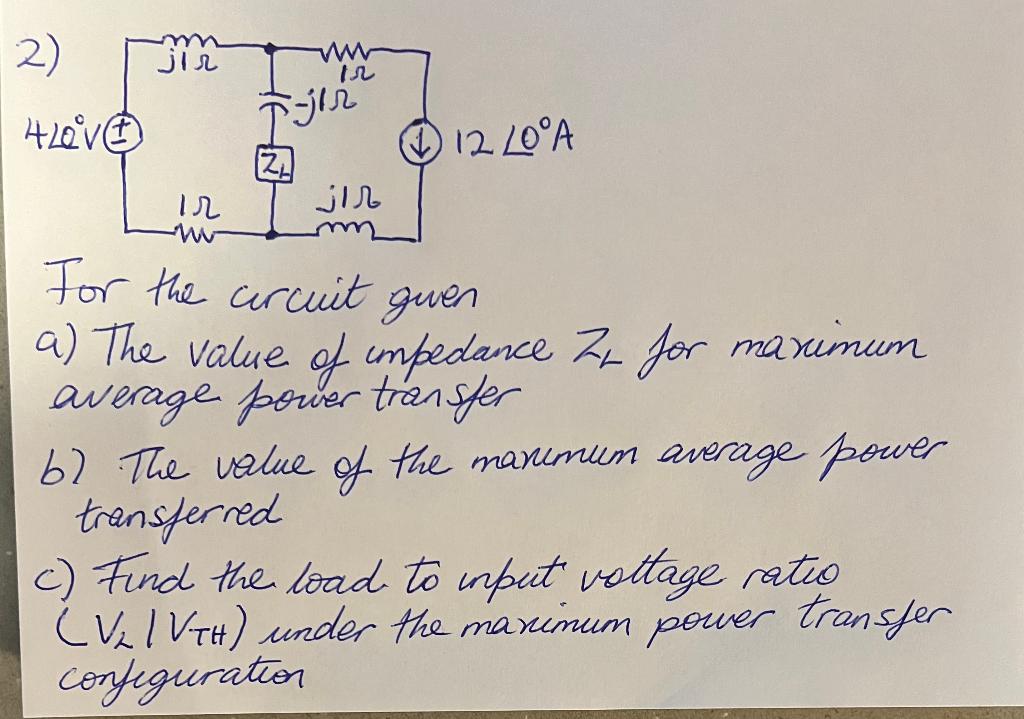 2)
j1Ω
1Ω
-j1Ω
4∠0°V
+
-
12∠0°A
ZL
1Ω
j1Ω
For the circuit given
a) The value of impedance ZL for maximum
average power transfer
b) The value of the maximum average power
transferred
c) Find the load to input voltage ratio
(VL / VTH) under the maximum power transfer
configuration